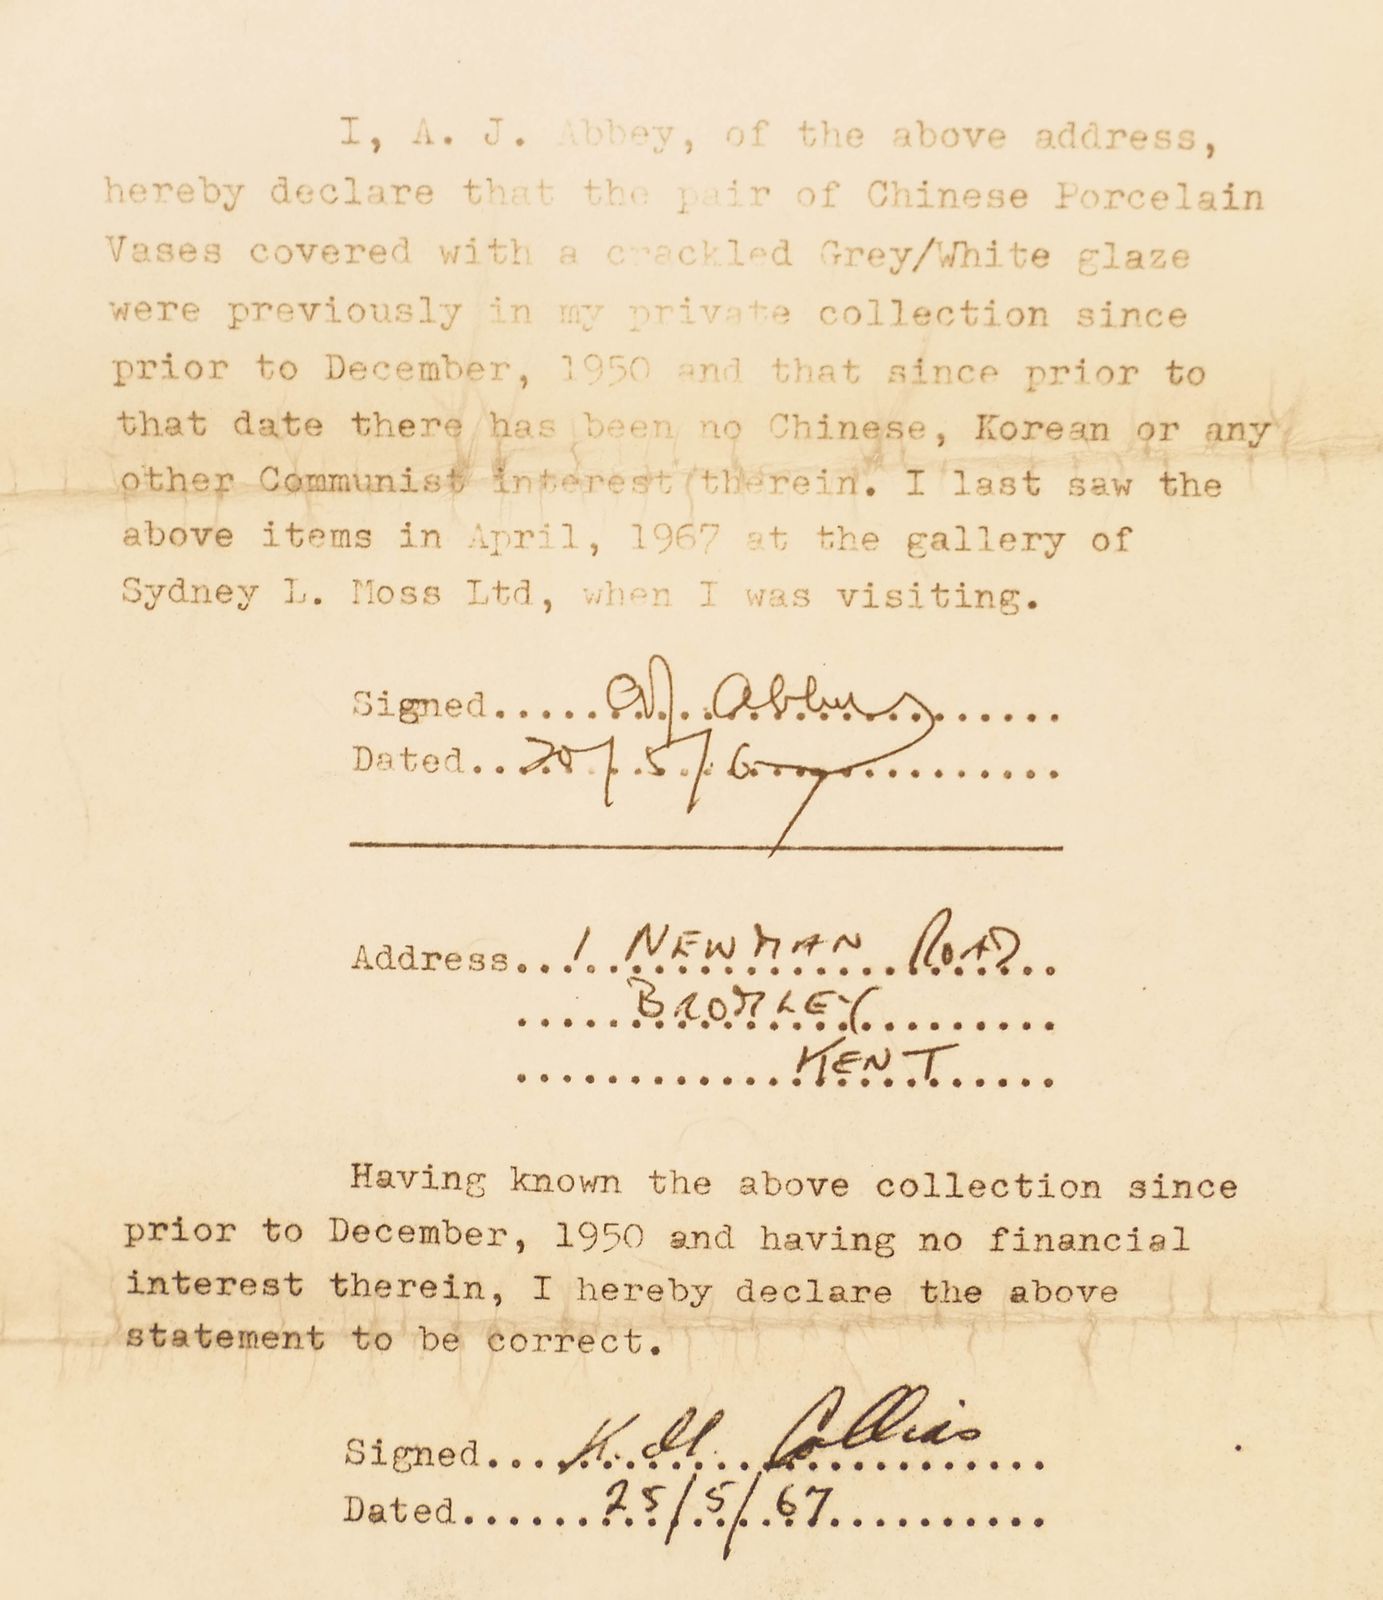 I, A. J. Abbey, of the above address,
hereby declare that the pair of Chinese Porcelain
Vases covered with a crackled Grey/White glaze
were previously in my private collection since
prior to December, 1950 and that since prior to
that date there has been no Chinese, Korean or any
other Communist interest therein. I last saw the
above items in April, 1967 at the gallery of
Sydney L. Moss Ltd, when I was visiting.
Signed..... AJ Abbey ......
Dated.. 20/5/67 ..........
Address... 1 NEWMAN ROAD
BROMLEY
KENT
Having known the above collection since
prior to December, 1950 and having no financial
interest therein, I hereby declare the above
statement to be correct.
Signed.... K. M. Collins ....
Dated...... 25/5/67 ..........